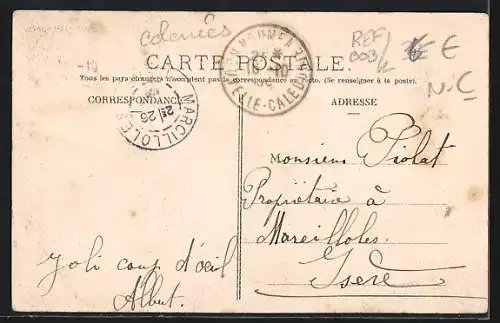 colonies
REF
003/
€
N.C
CARTE POSTALE
Tous les pays étrangers n'acceptent pas la correspondance au recto. (Se renseigner à la poste).
CORRESPONDANCE
ADRESSE
NOUMEA
LLE-CALEDO
MARCILLOLES
2E
26
Monsieur Piolat
Propriétaire à
Marcilloles.
Isère
Joli coup d'oeil
Albert.